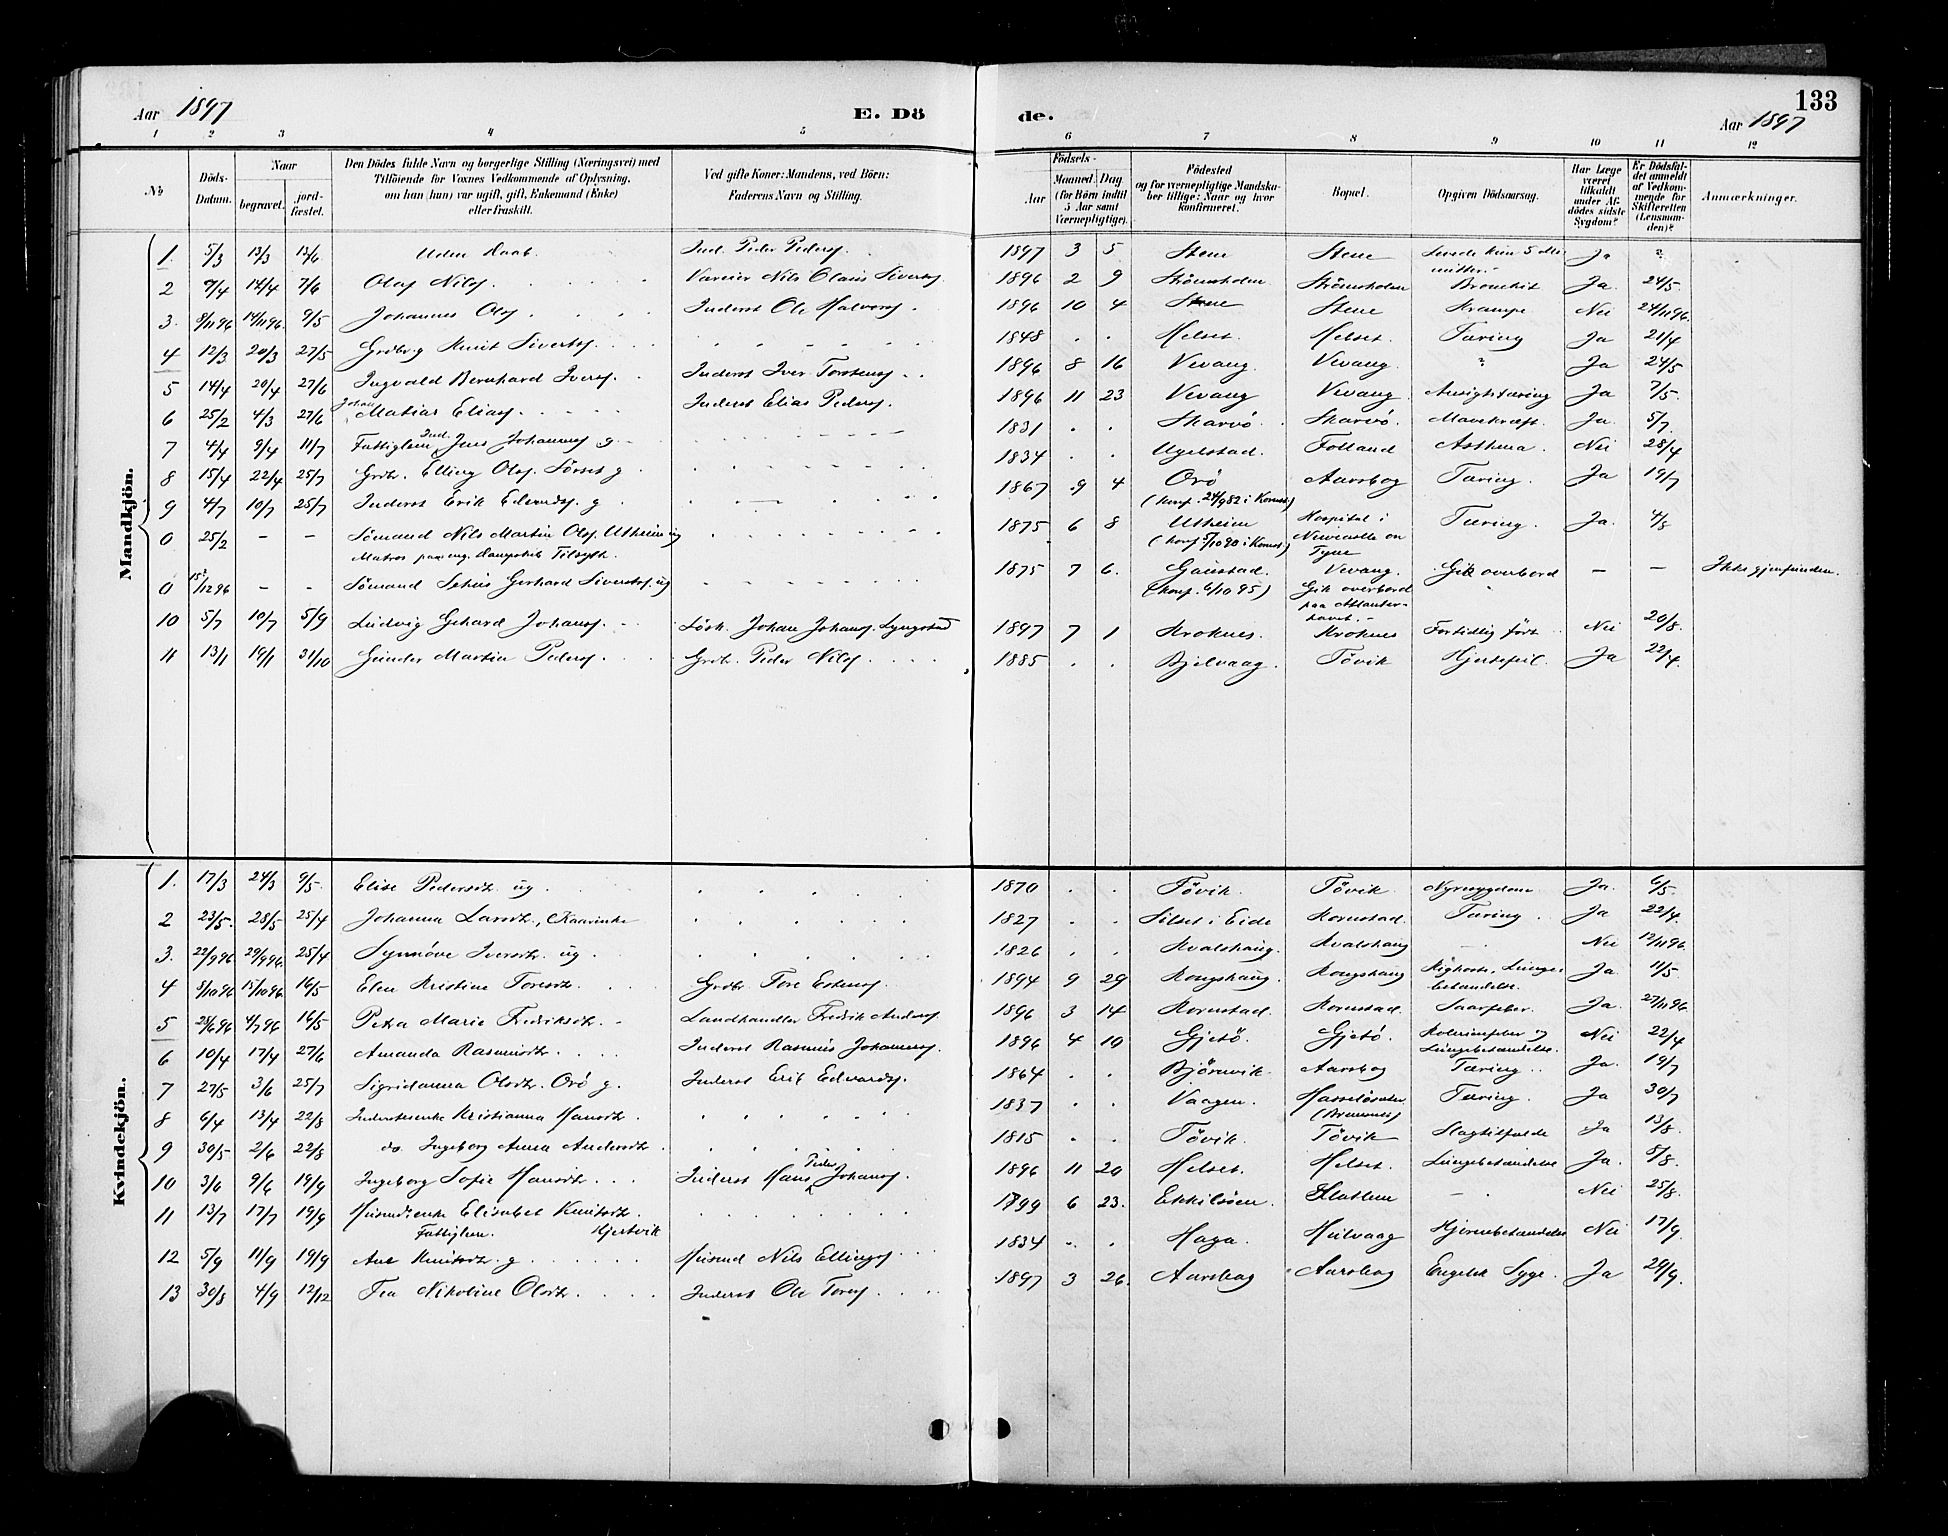 133
Aar 1897 E. Dö de. Aar 1897
1 2 3 4 5 6 7 8 9 10 11 12
No
Döds-Datum.
Naar
begravet.
jord-fæstet.
Den Dödes fulde Navn og borgerlige Stilling (Næringsvei) med
Tilföiende for Voxnes Vedkommende af Oplysning,
om han (hun) var ugift, gift, Enkemand (Enke)
eller fraskilt.
Ved gifte Koner: Mandens, ved Börn:
Faderens Navn og Stilling.
Födsels-
Aar
Maaned. Dag
(for Börn indtil
5 Aar samt
Værnepligtige).
Födested
og for værnepligtige Mandska-
ber tillige: Naar og hvor
konfirmeret.
Bopæl.
Opgiven Dödsaarsag.
Har Læge
været
tilkaldt
under Af-
dödes sidste
Sygdom?
Er Dödsfal-
det anmeldt
af Vedkom-
mende for
Skifteretten
(Lensman-
den)?
Anmærkninger.
Mandkjön.
1. 5/3 13/3 13/6 Uden Daab. Ind. Peder Peders. 1897 3 5 Stene Stene Levede kun 5 Mi-nutter. Ja ?
2 7/4 14/4 7/6 Olaf Nils. Vareier Nils Olaus Siverts. 1896 2 9 Strömsholm Strömsholm Bronkit Ja. 24/5.
3. 8/11 96 14/11 96. 9/5 Johannes Ols. Inderst Ole Halvors. 1896 10 4 Stene Stene Krampe Nei 24/11 96.
4 12/3 20/3 27/5 Grdbr. g Knut Siverts. 1848 Helset. Helset. Tæring Ja 21/4
5 14/4 20/4 27/6 Ingvald Bernhard Ivers. Inderst Iver Torstens. 1896 8 16 Vevang. Vevang. ? Ja 24/5
6 25/2 4/3 27/6 Johan Matias Elias. Inderst Elias Peders. 1896 11 23 Vevang Vevang. Ja 7/5.
7 4/4 9/4 11/7 Fattiglem Ind. Jens Johanness. g 1831 Skarvö. Skarvö. Mavekræft. Ja. 5/7.
8 15/4 22/4 25/7 Grdbr. Elling Ols. Sörset g 1834 Ugelstad. Folland Asthma. Nei 28/4
9 4/7 10/7 25/7 Inderst Erik Edvards. g 1867 9 4 Orö (konf. 24/9 82 i Kornst.) Aarsbog Tæring. Ja 19/7
0 25/2 – – Sömand Nils Martin Ols. Utheim ug 1875 6 8 Utheim (konf. 5/10 90 i Kornst.) Hospital i Newcastle on Tyne Tæring. Ja. 4/8
Matros paa eng. Dampskib
0 15?/12 96 – – Sömand Gerhard Siverts. ug 1875 7 6. Gaustad. (konf. 6/10 95) Vevang. Gik overbord paa Atlanter-havet. Gik overbord – – Ikke gjenfunden.
10 5/7 10/7 5/9 Ludvig Gehard Johans. Lösk. Johan Johans. Lyngstad 1897 7 1 Kroknes. Kroknes Fortidlig födt Nei 20/8.
11 13/1 19/1 31/10 Gunder Martin Peders. Grdb. Peder Nils. 1885 Bjelvaag. Tövik Hjertefeil. Ja 22/4.
Kvindekjön.
1. 17/3 24/3 9/5. Elise Pedersdt. ug 1870 Tövik. Tövik. Nyresygdom Ja. 6/5.
2 23/5. 28/5 25/4 Johanna Larsdt., Kaarenke 1827 Silset i Eide Kornstad. Tæring. Ja 22/4.
3. 22/9 96 29/9 96. 25/4 Synnöve Iversdt. ug. 1826 Kvalshaug. Kvalshaug – Nei 12/11 96.
4 8/10 96 15/10 96. 16/5 Elen Kristine Toresdt. Grdbr. Tore Estens. 1894 9 29 Kongshaug. Kongshaug Kighoste, Lunge-betændelse. Ja. 11/5
5 4/7 96 16/5 Petra Marie Fredriksdt. Landhandler Fredrik Anders. 1896 3 14 Kornstad. Kornstad. Saarfeber. Ja. 27/11 96
6 10/4 17/4 27/6 Amanda Rasmusdt. Inderst Rasmus Johanness. 1896 4 10 Gjetö. Gjetö. og Lungebetændelse. Nei 22/4
7 27/5 3/6 25/7 Sigridanna Olsdt. Orö g. Inderst Erik Edvards. 1864 Björnvik. Aarsbog Tæring. Ja. 19/7
8 6/4 13/4 22/8 Inderstenke Kristianna Hansdt. 1837 Vaagen. (Bremsnes) Tæring. Ja 30/7
9 30/5 2/6 22/8 do. Ingeborg Anna Andersdt. 1815 Tövik. Tövik Slagtilfælde Ja 13/8.
10 3/6 9/6 19/9 Ingeborg Sofie Hansdt. Inderst Hans Peder Johans. 1896 11 20 Helset. Helset. Lungebetændelse Ja. 5/8.
11 13/7 17/7 19/9 Husmdsenke Elisabet Knutsdt. Fattiglem. Hjertvik 1799 6 23. Ekkilsöen. Slatlem – Nei 25/8.
12 5/9 11/9 19/9 Ane Knutsdt. g Husmd Nils Ellings. 1834 Haga. Hulvaag Hjernebetændelse Nei 17/9.
13 30/8 4/9 12/12 Tea Nikoline Olsdt. Inderst Ole Tores. 1897 3 26. Aarsbog Aarsbog Engelsk Syge. Ja 29/9.